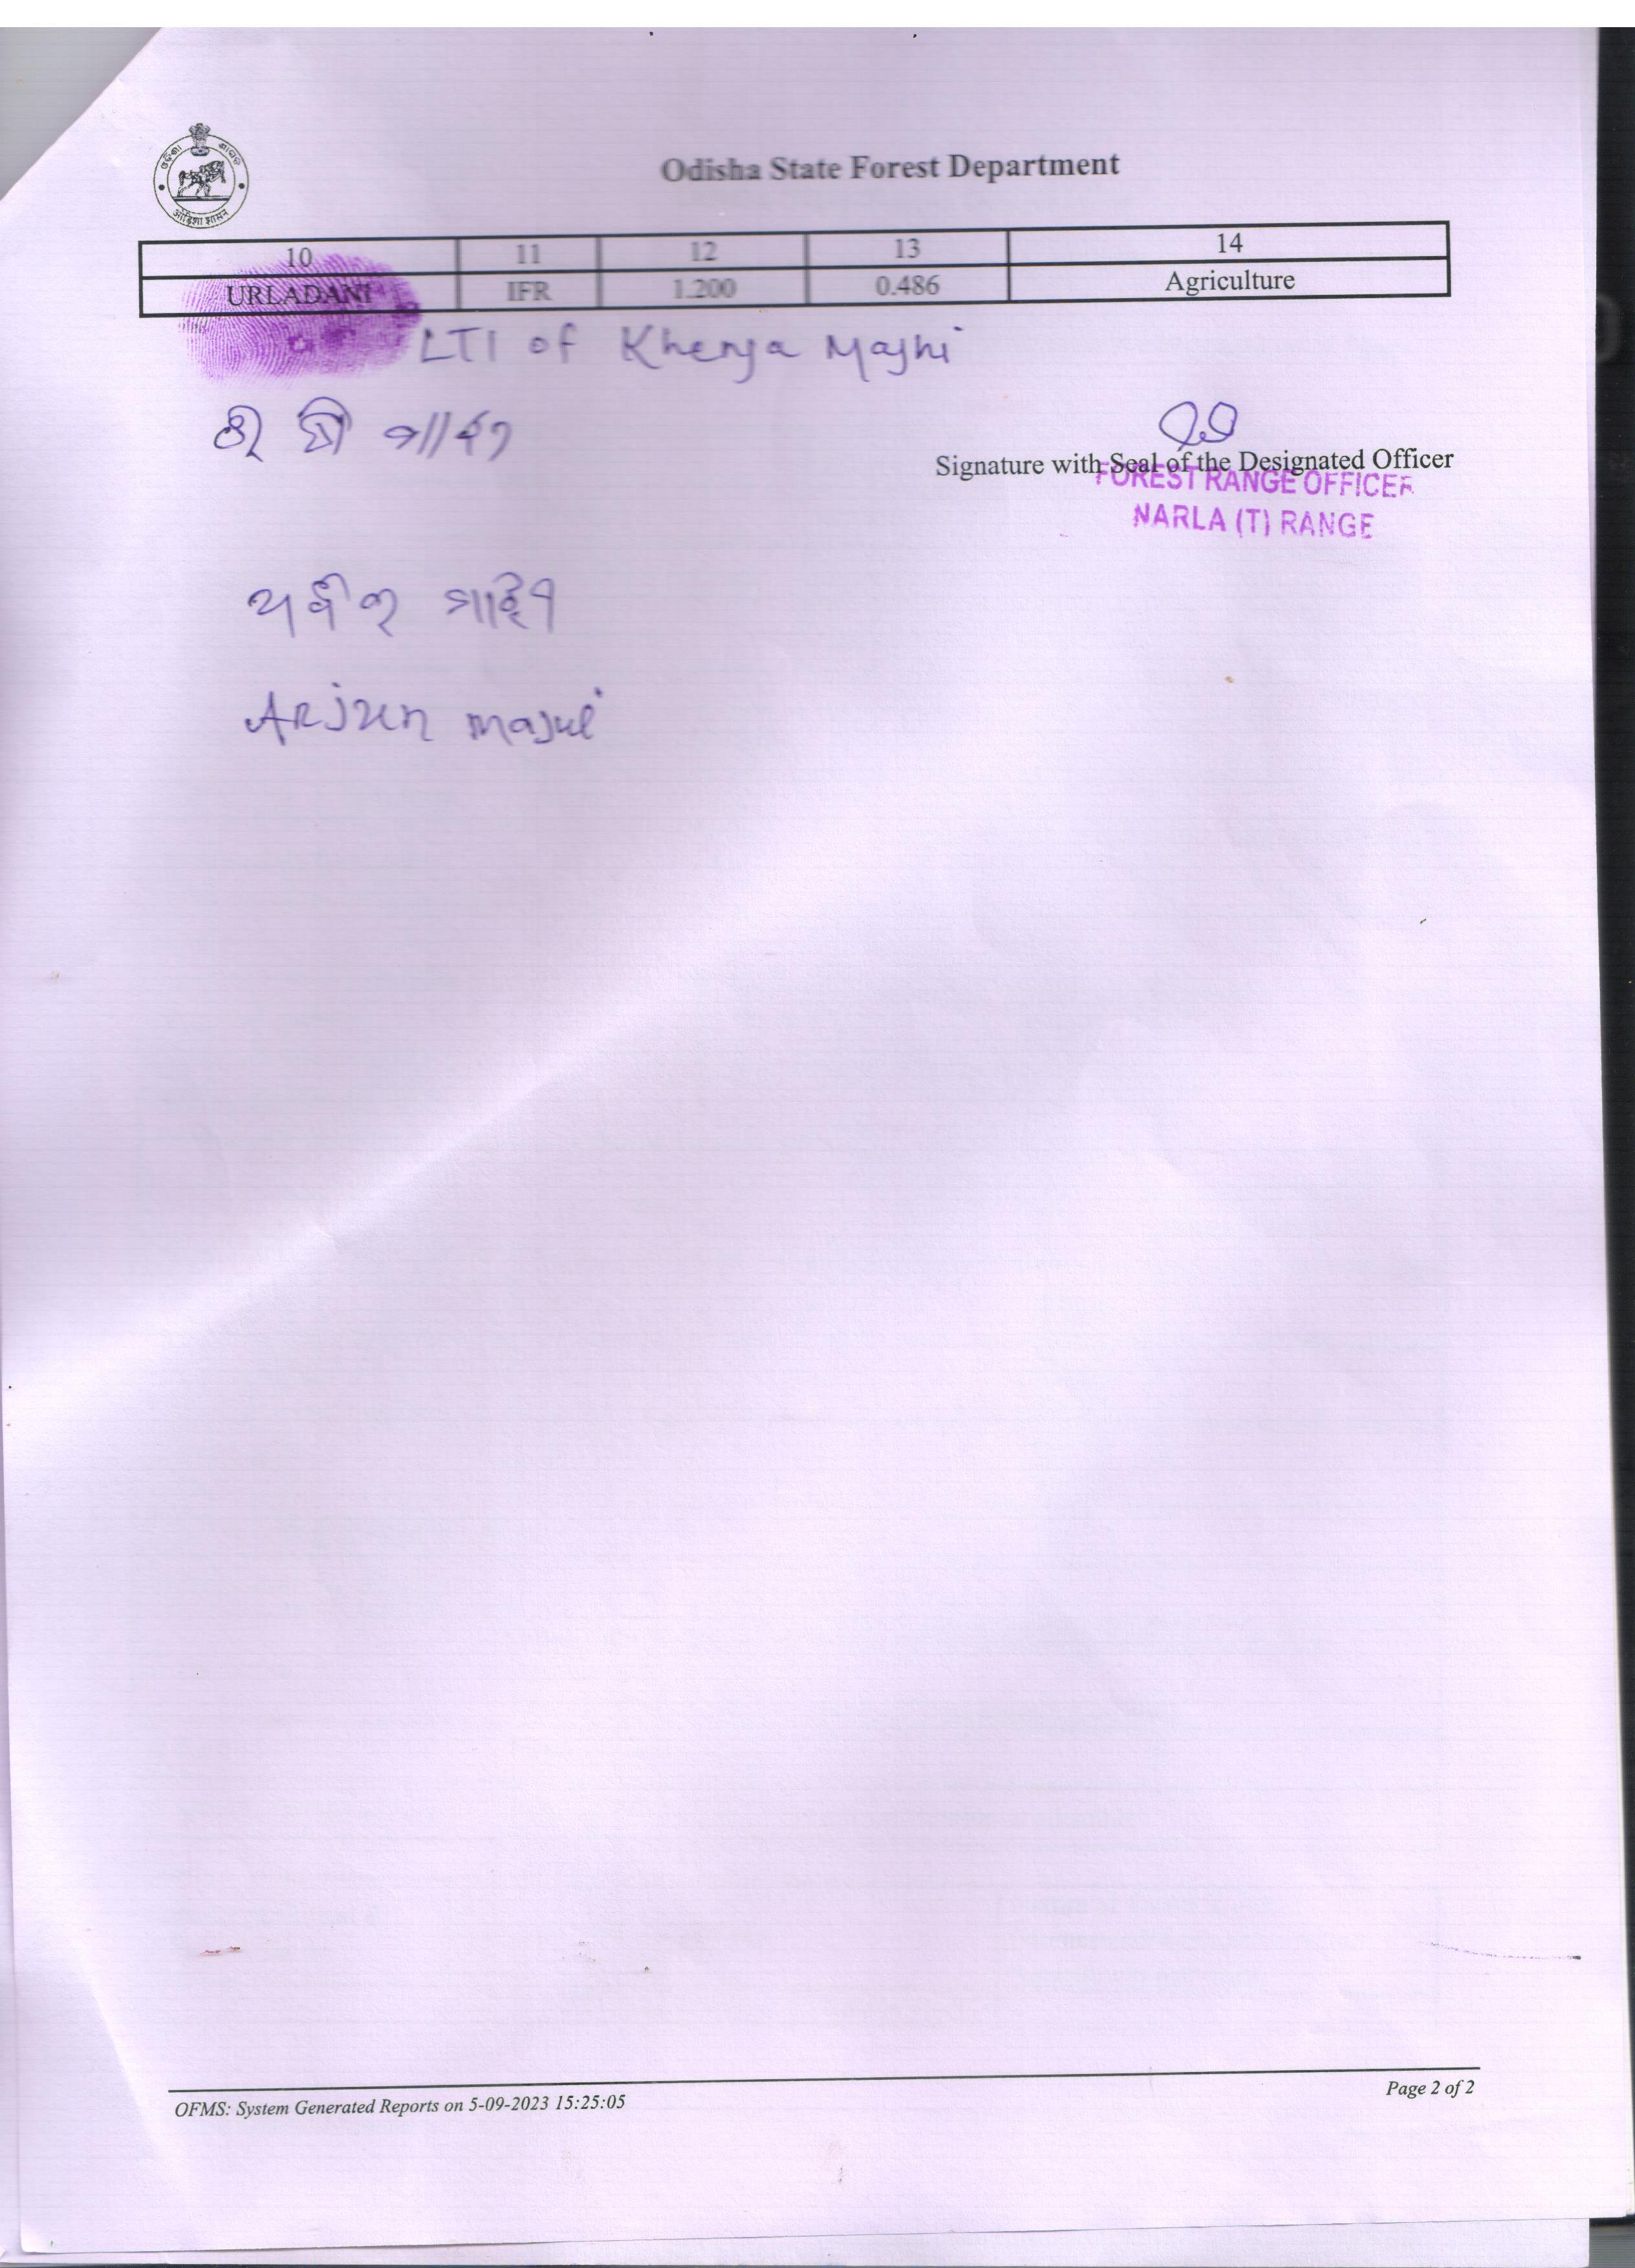 ଓଡ଼ିଶା ଶାସନ
ओड़िशा शासन
Odisha State Forest Department
10 11 12 13 14
URLADANI IFR 1.200 0.486 Agriculture
LTI of Khenja Majhi
ମାଝୀ
Signature with Seal of the Designated Officer
FOREST RANGE OFFICER
NARLA (T) RANGE
ମାଝି
Arjun majhi
OFMS: System Generated Reports on 5-09-2023 15:25:05
Page 2 of 2